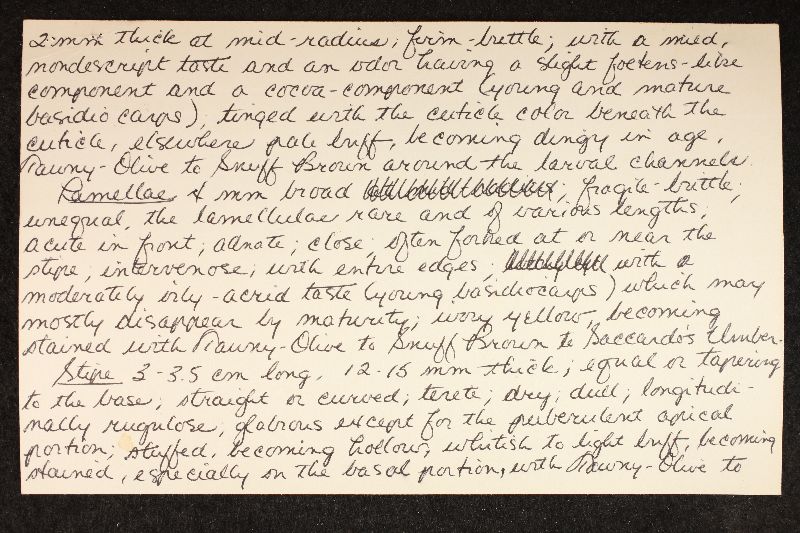 2 mm thick at mid-radius; firm-brittle; with a mild,
nondescript taste and an odor having a slight foetens-like
component and a cocoa-component (young and mature
basidiocarps); tinged with the cuticle color beneath the
cuticle, elsewhere pale buff, becoming dingy in age,
Tawny-Olive to Snuff Brown around the larval channels.
Lamellae 4 mm broad; fragile-brittle;
unequal, the lamellulae rare and of various lengths;
acute in front; adnate; close; often forked at or near the
stipe; intervenose; with entire edges; with a
moderately oily-acrid taste (young basidiocarps) which may
mostly disappear by maturity; ivory yellow, becoming
stained with Tawny-Olive to Snuff Brown to Baccardo's Umber.
Stipe 3-3.5 cm long, 12-15 mm thick; equal or tapering
to the base; straight or curved; terete; dry; dull; longitudi-
nally rugulose; glabrous except for the puberulent apical
portion; stuffed, becoming hollow; whitish to light buff, becoming
stained, especially on the basal portion, with Tawny-Olive to